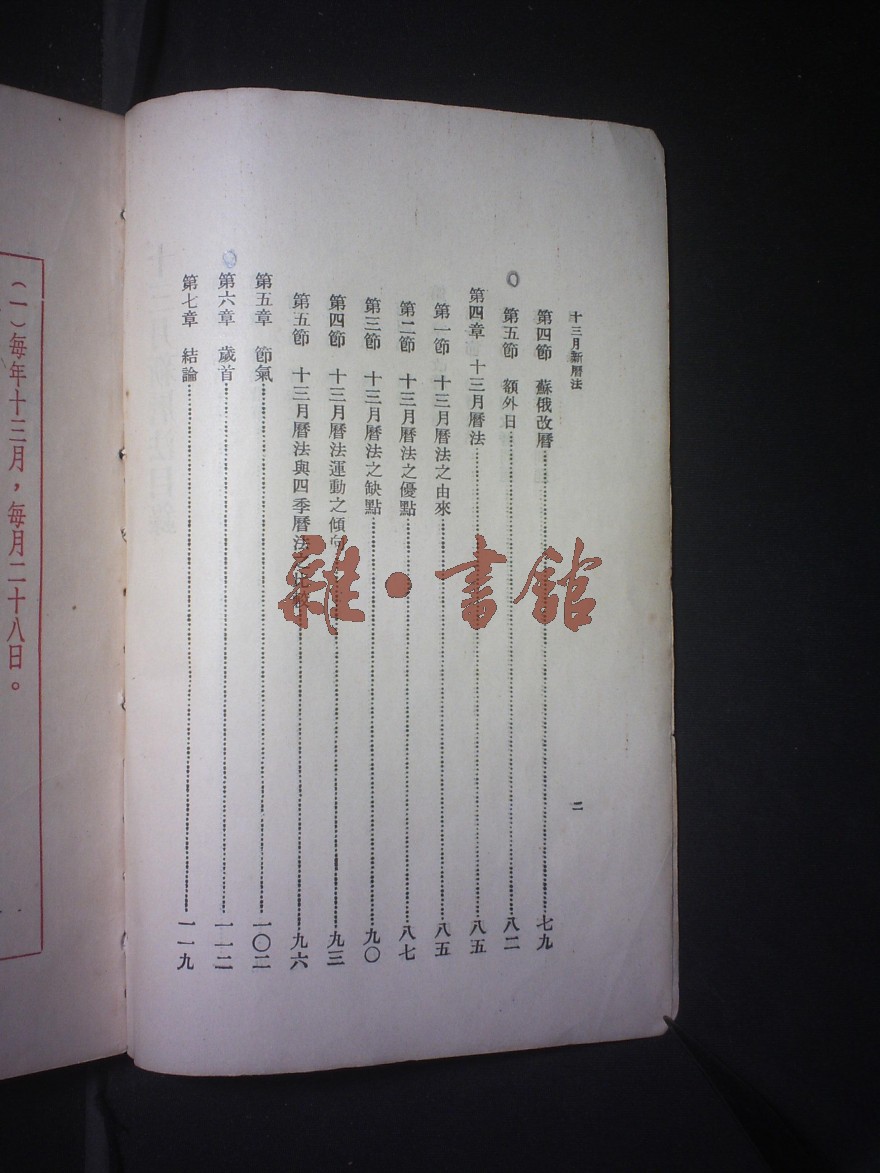 十三月新曆法
二
第四節　蘇俄改曆……七九
第五節　額外日……八二
第四章　十三月曆法……八五
第一節　十三月曆法之由來……八五
第二節　十三月曆法之優點……八七
第三節　十三月曆法之缺點……九〇
第四節　十三月曆法運動之傾向……九三
第五節　十三月曆法與四季曆法之比較……九六
第五章　節氣……一〇二
第六章　歲首……一一二
第七章　結論……一一九
（一）每年十三月，每月二十八日。
雜·書館